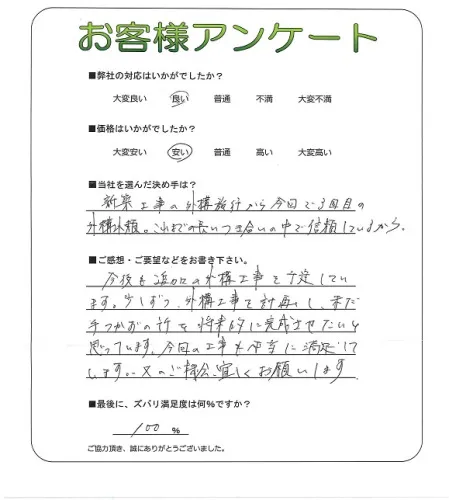 お客様アンケート
■弊社の対応はいかがでしたか？
大変良い 良い 普通 不満 大変不満
■価格はいかがでしたか？
大変安い 安い 普通 高い 大変高い
■当社を選んだ決め手は？
新築工事の外構設計から今回で3回目の
外構依頼。これまでの長いつき合いの中で信頼しているから。
■ご感想・ご要望などをお書き下さい。
今後も追加の外構工事を予定してい
ます。少しずつ、外構工事を計画し、まだ
手つかずの所を将来的に完成させたいと
思っています。今回の工事も本当に満足して
います。又のご機会、宜しくお願いします
■最後に、ズバリ満足度は何%ですか？
100 %
ご協力頂き、誠にありがとうございました。